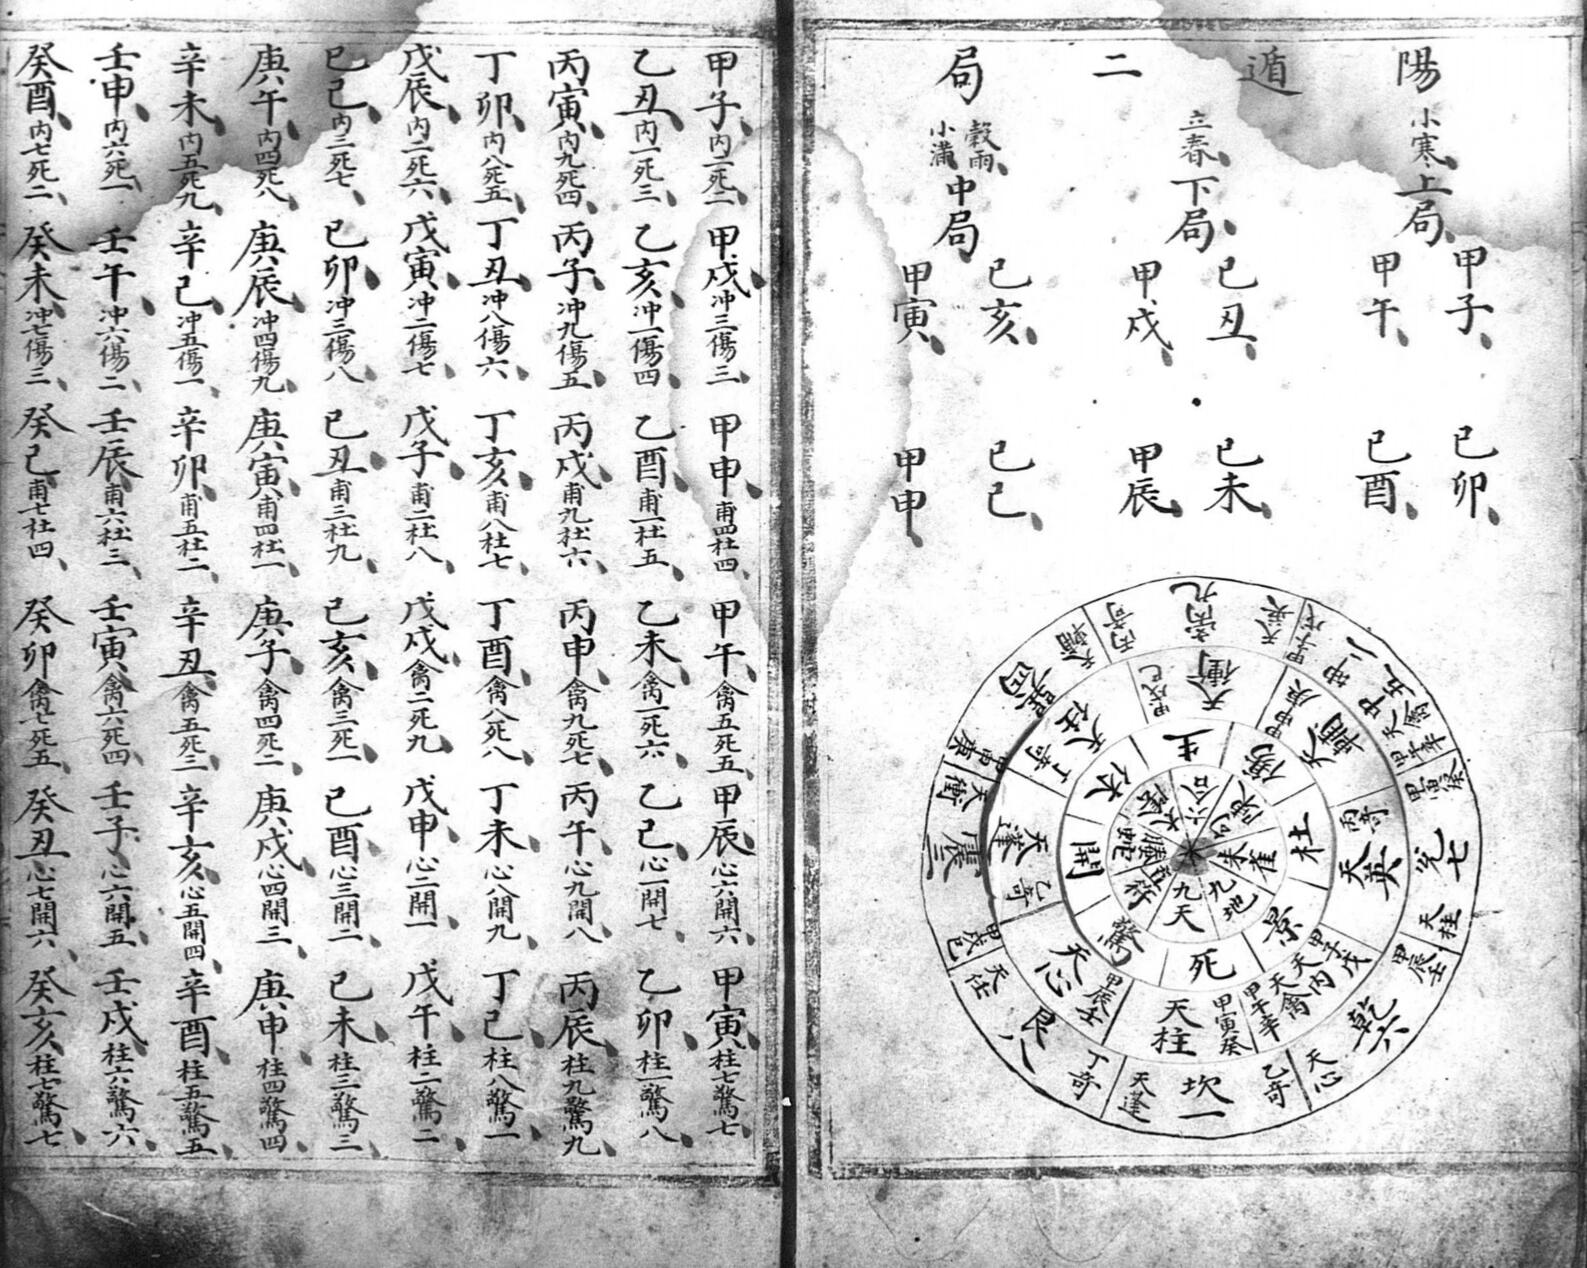 陽遁二局
小寒上局
甲子、己卯、
甲午、己酉、
立春、下局、
己丑、己未、
甲戌、甲辰、
穀雨、小滿中局
己亥、己巳、
甲寅、甲申、
离九
天英
丙奇
坤二
中五
甲子戊
天禽
甲午辛
甲寅癸
兌七
天柱
甲辰壬
乾六
天心
乙奇
坎一
天蓬
丁奇
艮八
天任
甲戌己
震三
天衝
甲申庚
巽四
天輔
天衝
甲戌己
天輔
甲申庚
天英
丙奇
天内
甲子戊
天禽
甲午辛
天柱
甲寅癸
天心
甲辰壬
天蓬
乙奇
天任
丁奇
生
傷
杜
景
死
驚
開
休
六合
勾陳
朱雀
九地
九天
直符
螣蛇
太陰
甲子内二死二、甲戌、冲三傷三、甲申、甫四杜四、甲午、禽五死五、甲辰、心六開六、甲寅、柱七驚七、
乙丑、内一死三、乙亥、冲一傷四、乙酉、甫一杜五、乙未、禽一死六、乙巳、心一開七、乙卯、柱一驚八、
丙寅、内九死四、丙子、冲九傷五、丙戌、甫九杜六、丙申、禽九死七、丙午、心九開八、丙辰、柱九驚九、
丁卯、内八死五、丁丑、冲八傷六、丁亥、甫八杜七、丁酉、禽八死八、丁未、心八開九、丁巳、柱八驚一、
戊辰、内二死六、戊寅、冲二傷七、戊子、甫二杜八、戊戌、禽二死九、戊申、心二開一、戊午、柱二驚二、
己巳、内三死七、己卯、冲三傷八、己丑、甫三杜九、己亥、禽三死一、己酉、心三開二、己未、柱三驚三、
庚午、内四死八、庚辰、冲四傷九、庚寅、甫四杜一、庚子、禽四死二、庚戌、心四開三、庚申、柱四驚四、
辛未、内五死九、辛巳、冲五傷一、辛卯、甫五杜二、辛丑、禽五死三、辛亥、心五開四、辛酉、柱五驚五、
壬申、内六死一、壬午、冲六傷二、壬辰、甫六杜三、壬寅、禽六死四、壬子、心六開五、壬戌、柱六驚六、
癸酉、内七死二、癸未、冲七傷三、癸巳、甫七杜四、癸卯、禽七死五、癸丑、心七開六、癸亥、柱七驚七、